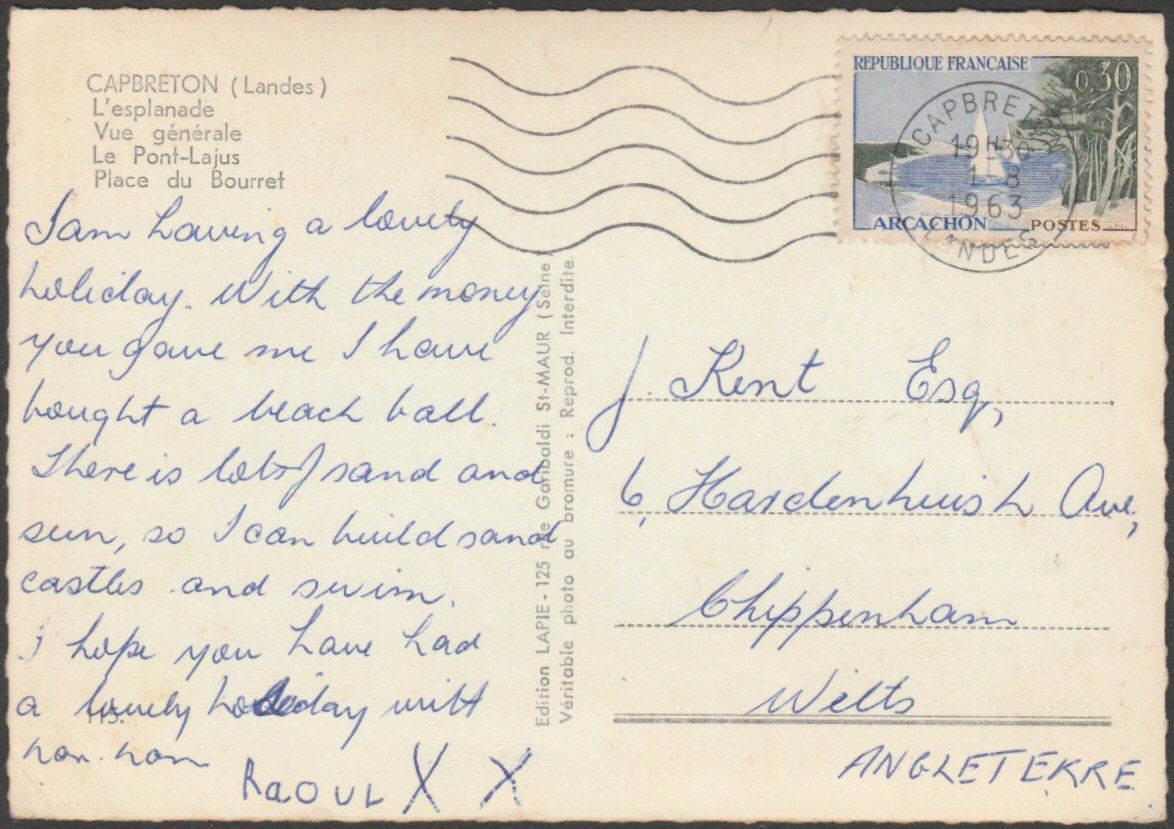 CAPBRETON (Landes)
L'esplanade
Vue générale
Le Pont-Lajus
Place du Bourret
I am having a lovely
holiday. With the money
you gave me I have
bought a beach ball.
There is lots of sand and
sun, so I can build sand
castles and swim.
I hope you have had
a lovely holiday with
non-nom
RAOUL X X
113.
Edition LAPIE - 125 rue Garibaldi St-MAUR (Seine)
Véritable photo au bromure : Reprod. Interdite.
REPUBLIQUE FRANÇAISE
0,30
ARCACHON
POSTES
CAPBRETON
19H30
1-8
1963
LANDES
J. Kent Esq,
6, Hardenhuish Ave,
Chippenham
Wilts
ANGLETERRE